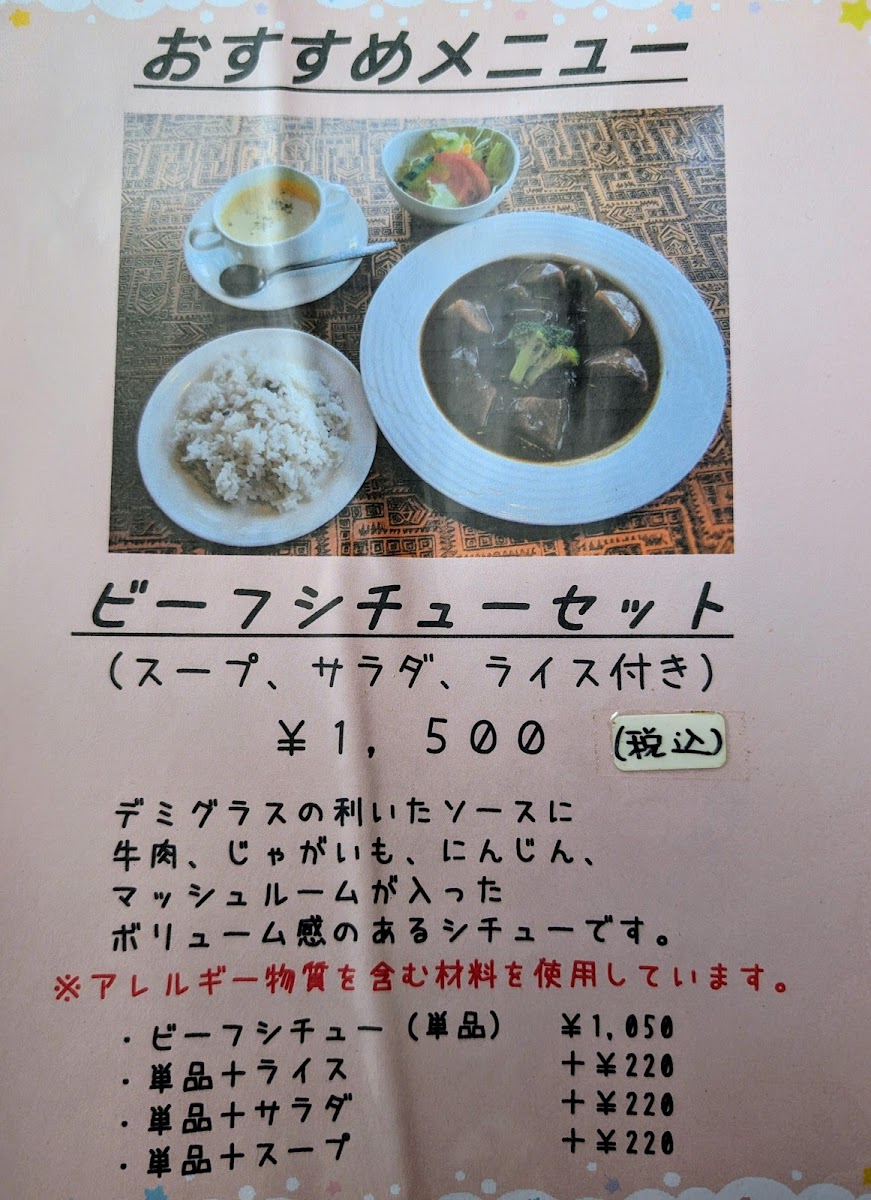 おすすめメニュー
ビーフシチューセット
(スープ、サラダ、ライス付き)
¥1,500 (税込)
デミグラスの利いたソースに
牛肉、じゃがいも、にんじん、
マッシュルームが入った
ボリューム感のあるシチューです。
※アレルギー物質を含む材料を使用しています。
・ビーフシチュー(単品) ¥1,050
・単品+ライス +¥220
・単品+サラダ +¥220
・単品+スープ +¥220